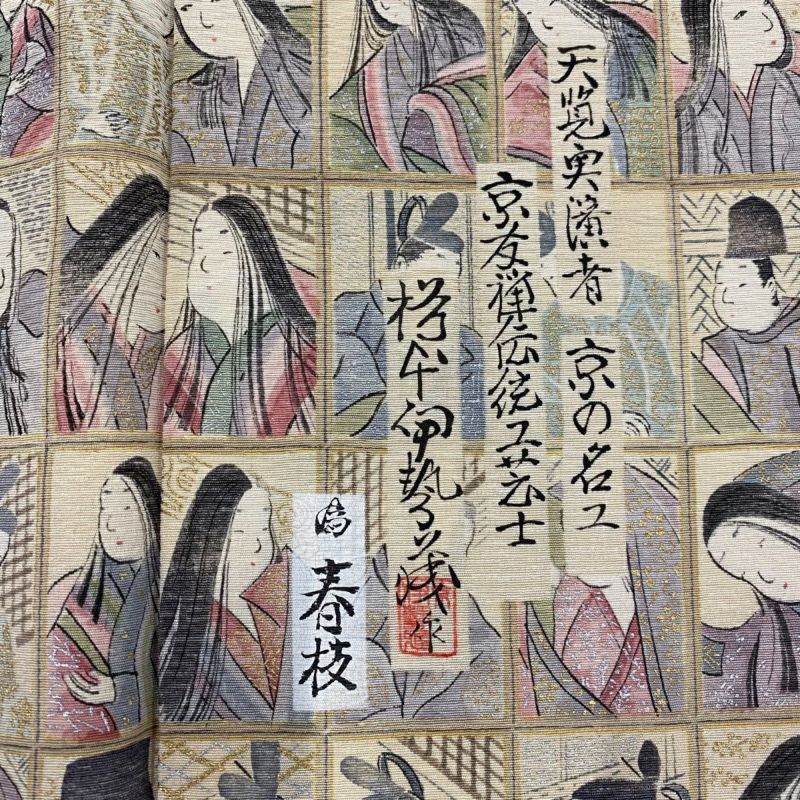 天覧実演者 京の名工
京友禅伝統工芸士
伊勢 作
為 春枝